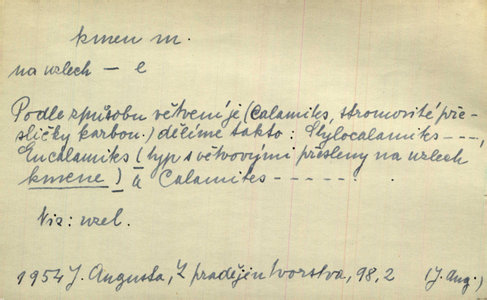 kmen m.
na uzlech – e
Podle způsobu větvení je (Calamites, stromovité pře-
sličky karbon.) dělíme takto: Stylocalamites ----,
Eucalamites (typ s větvovými přesleny na uzlech
kmene) a Calamites ------.
Viz: uzel.
1954 J. Augusta, Z pradějin tvorstva, 98,2 (J. Aug.)